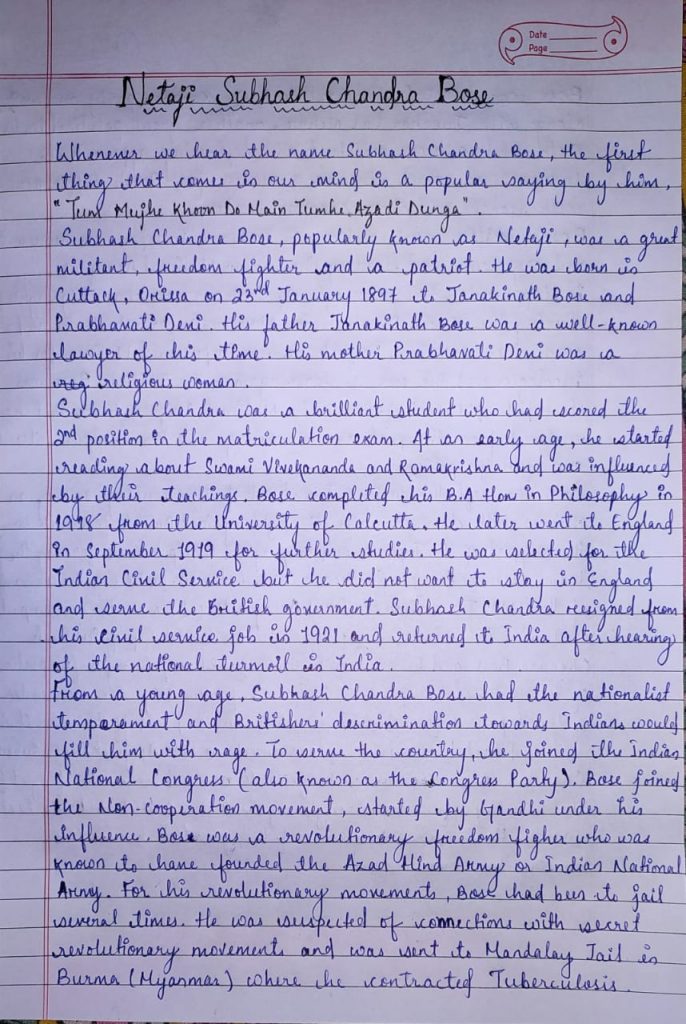 Date
Page
Netaji Subhash Chandra Bose
Whenever we hear the name Subhash Chandra Bose, the first
thing that comes in our mind is a popular saying by him,
"Tum Mujhe Khoon Do Main Tumhe Azadi Dunga".
Subhash Chandra Bose, popularly known as Netaji, was a great
militant, freedom fighter and a patriot. He was born in
Cuttack, Orissa on 23rd January 1897 to Janakinath Bose and
Prabhavati Devi. His father Janakinath Bose was a well-known
lawyer of his time. His mother Prabhavati Devi was a
religious woman.
Subhash Chandra was a brilliant student who had scored the
2nd position in the matriculation exam. At an early age, he started
reading about Swami Vivekananda and Ramakrishna and was influenced
by their teachings. Bose completed his B.A Hon in Philosophy in
1918 from the University of Calcutta. He later went to England
in September 1919 for further studies. He was selected for the
Indian Civil Service but he did not want to stay in England
and serve the British government. Subhash Chandra resigned from
his civil service job in 1921 and returned to India after hearing
of the national turmoil in India.
From a young age, Subhash Chandra Bose had the nationalist
temperament and Britishers' descrimination towards Indians would
fill him with rage. To serve the country, he joined the Indian
National Congress (also known as the Congress Party). Bose joined
the Non-cooperation movement, started by Gandhi under his
influence. Bose was a revolutionary freedom figher who was
known to have founded the Azad Hind Army or Indian National
Army. For his revolutionary movements, Bose had been to jail
several times. He was suspected of connections with secret
revolutionary movements and was sent to Mandalay Jail in
Burma (Myanmar) where he contracted Tuberculosis.